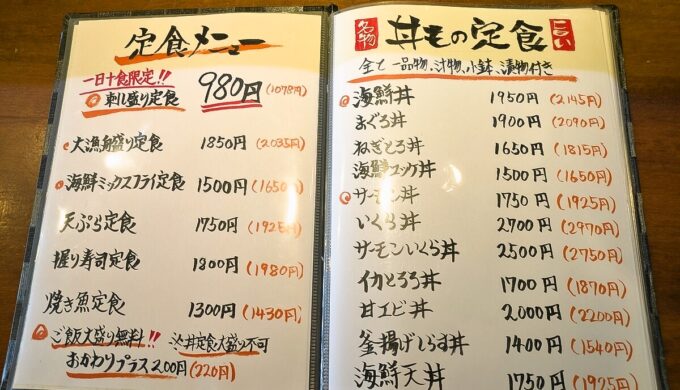 定食メニュー
一日十食限定!!
刺し盛り定食 980円(1078円)
大漁舟盛り定食 1850円(2035円)
海鮮ミックスフライ定食 1500円(1650円)
天ぷら定食 1750円(1925円)
握り寿司定食 1800円(1980円)
焼き魚定食 1300円(1430円)
ご飯大盛り無料!! ※丼定食大盛り不可
おかわりプラス200円(220円)
名物 丼もの定食
全て一品物、汁物、小鉢、漬物付き
海鮮丼 1950円(2145円)
まぐろ丼 1900円(2090円)
ねぎとろ丼 1650円(1815円)
海鮮ユッケ丼 1500円(1650円)
サーモン丼 1750円(1925円)
いくら丼 2700円(2970円)
サーモンいくら丼 2500円(2750円)
イカとろろ丼 1700円(1870円)
甘エビ丼 2000円(2200円)
釜揚げしらす丼 1400円(1540円)
海鮮天丼 1750円(1925円)